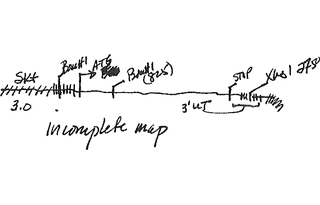 BamH1 ATG BamH1 (825) STOP Xho1
SK+
3.0 3'UT
Incomplete map